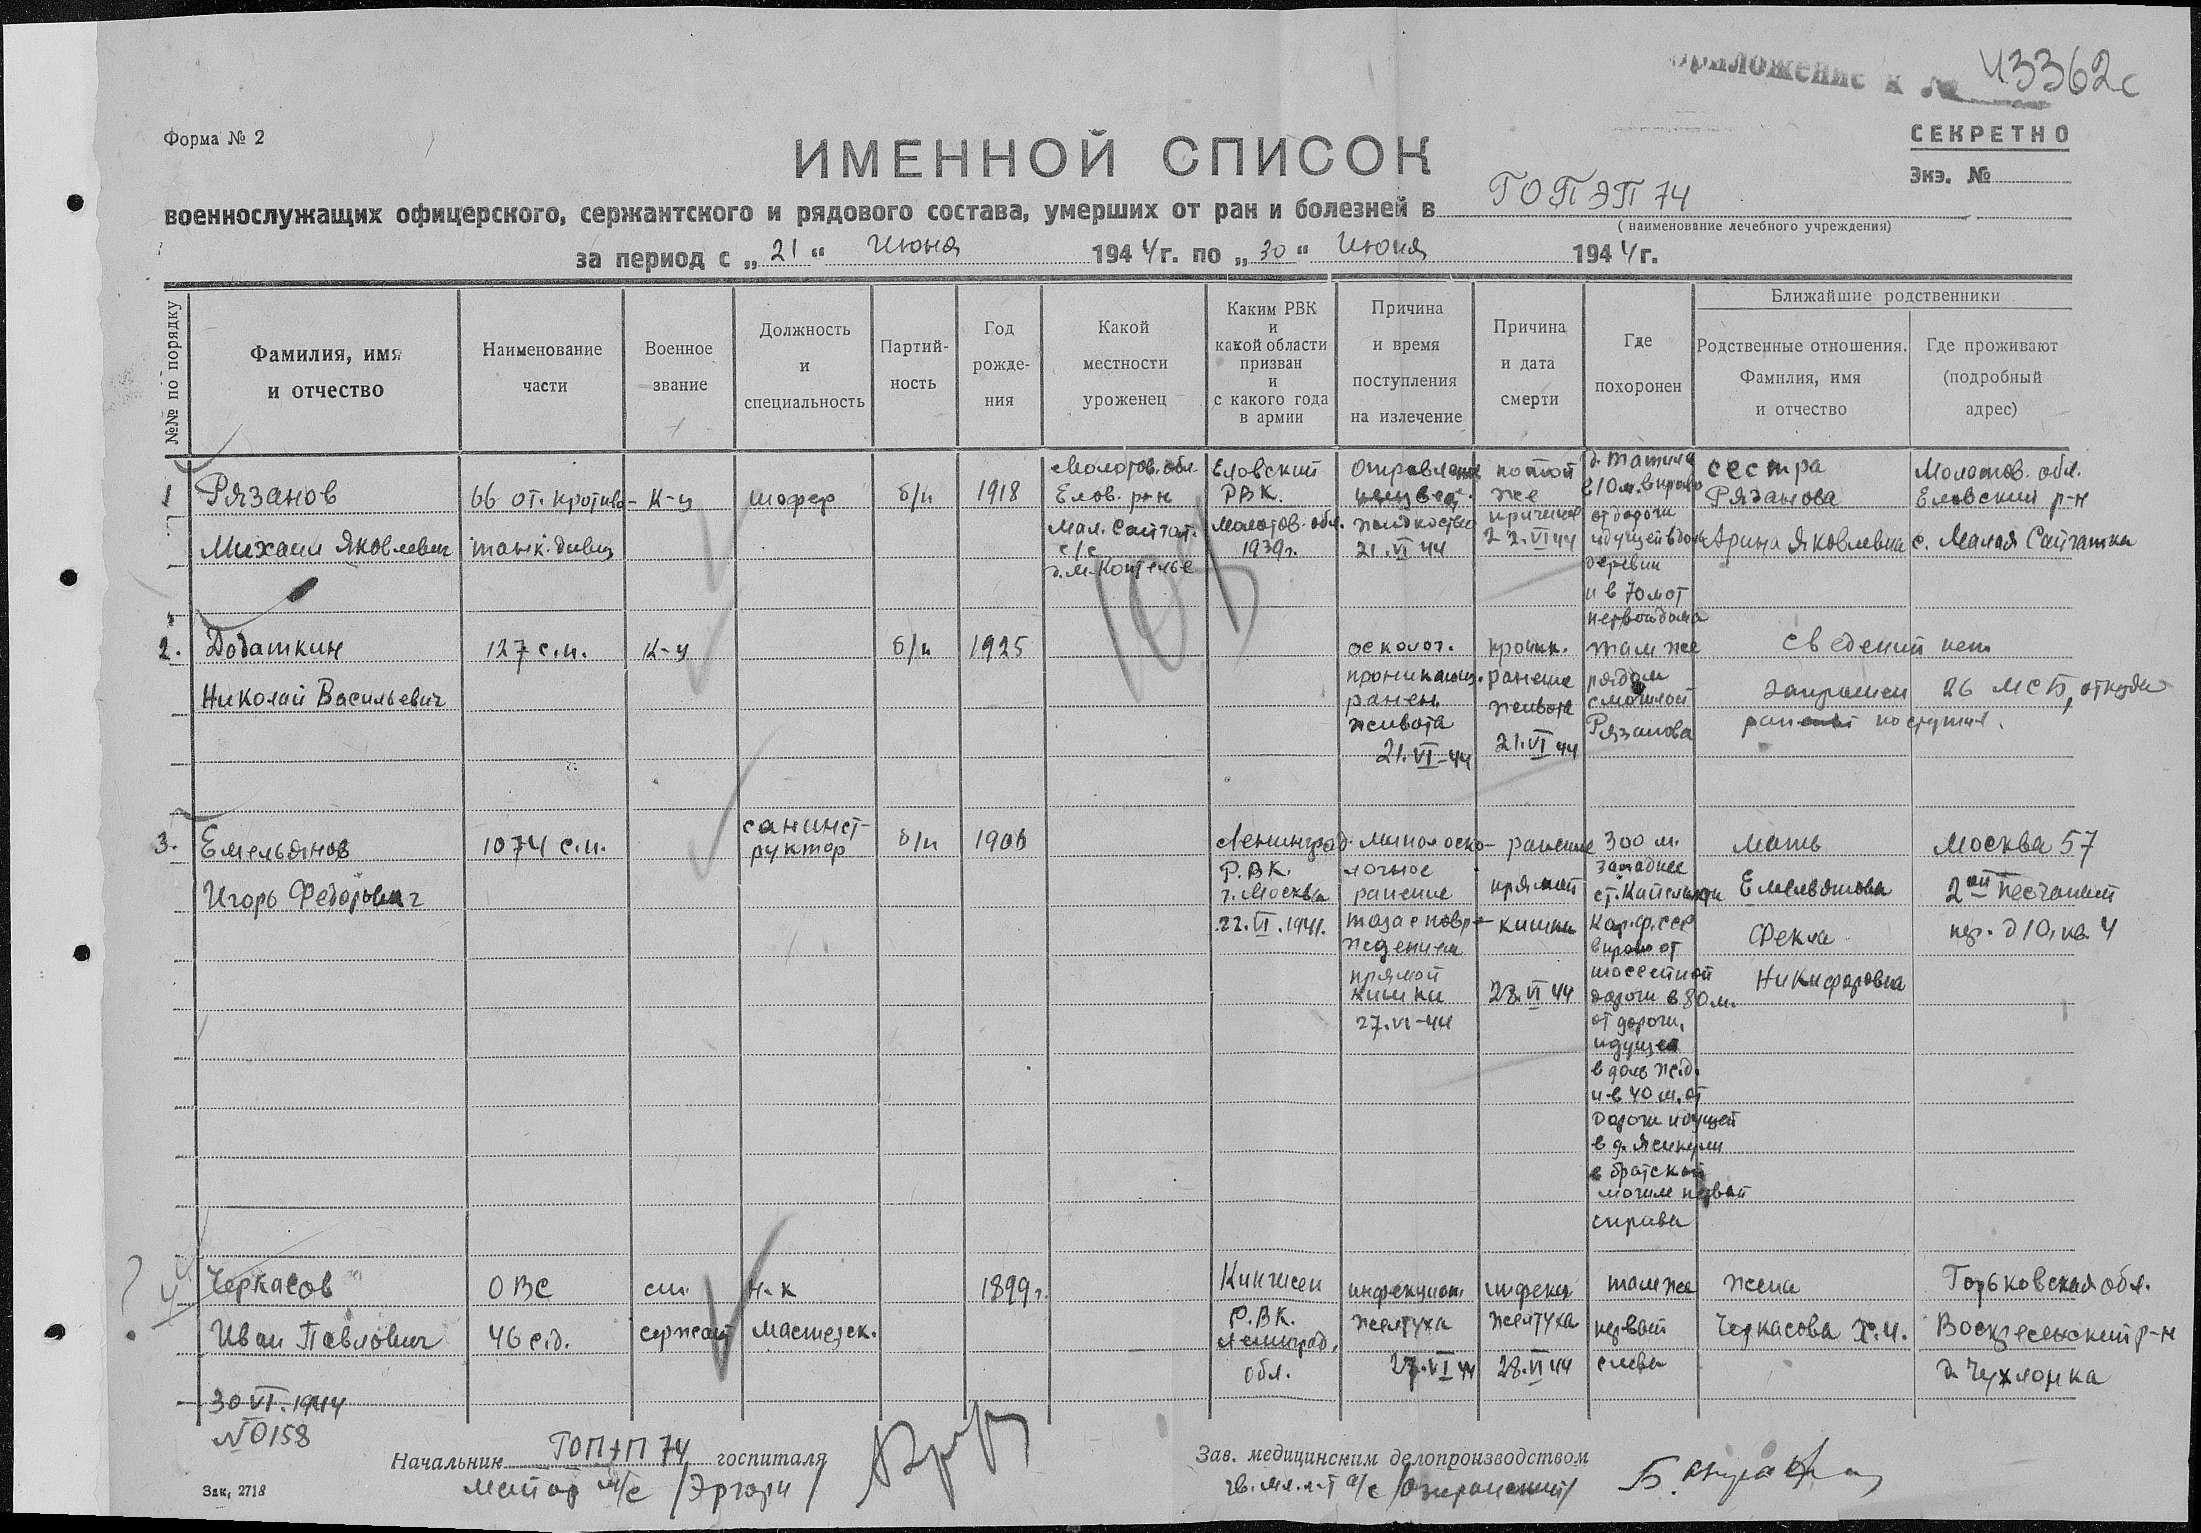 Приложение к № 43362с
СЕКРЕТНО
Экз. №
Форма № 2
ИМЕННОЙ СПИСОК
военнослужащих офицерского, сержантского и рядового состава, умерших от ран и болезней в ГОПЭП 74
(наименование лечебного учреждения)
за период с „21“ июня 1944 г. по „30“ июня 1944 г.
№№ по порядку
Фамилия, имя и отчество
Наименование части
Военное звание
Должность и специальность
Партий-ность
Год рожде-ния
Какой местности уроженец
Каким РВК и какой области призван и с какого года в армии
Причина и время поступления на излечение
Причина и дата смерти
Где похоронен
Ближайшие родственники
Родственные отношения. Фамилия, имя и отчество
Где проживают (подробный адрес)
1
Рязанов
Михаил Яковлевич
66 от. противо-
танк. дивиз
К-ц
шофер
б/п
1918
Молотов. обл.
Елов. р-н
Мал. Сайгат.
с/с
Еловский
РВК.
Молотов. обл.
1939г.
Отравление
жидкостью
21.VI 44
по той
же
причине
22.VI 44
в 10 м. вправо
от дороги
идущей вдоль
деревни
и в 70 м от
первого дома
сестра
Рязанова
Арина Яковлевна
Молотов. обл.
Еловский р-н
с. Малая Сайгатка
2.
Добаткин
Николай Васильевич
127 с.п.
К-ц
б/п
1925
осколоч.
проникающ.
ранен.
живота
21.VI-44
проник.
ранение
живота
21.VI 44
там же
рядом
с могилой
Рязанова
Сведений нет
Запрошен 26 МСБ, откуда
поступил.
3.
Емельянов
Игорь Федорович
1074 с.п.
санинст-
руктор
б/п
1906
Ленинград.
Р.В.К.
г. Москва
22.VI.1941.
мино оско-
лочное
ранение
таза с повре-
ждением
прямой
кишки
27.VI-44
ранение
прямой
кишки
28.VI 44
300 м.
западнее
Кар.ф.ССР
вправо от
шоссейной
дороги в 80 м.
от дороги,
идущей
вдоль ж.д.
и в 40 м. от
дороги идущей
в братской
могиле первый
справа
мать
Емельянова
Фекла
Никифоровна
Москва 57
2ой Песчаный
пер. д 10, кв. 4
4
Черкасов
Иван Павлович
ОВС
46 с.д.
ст.
сержант
н-к
мастерск.
1899 г.
Кингисеп
Р.В.К.
Ленинград.
обл.
инфекцион.
желтуха
27.VI 44
инфекц
желтуха
28.VI 44
там же
первый
слева
жена
Черкасова Х.И.
Горьковская обл.
Воскресенский р-н
д. Чухломка
30 VI.1944
№ 0158
Начальник ГОПЭП 74 госпиталя
майор м/с
Зав. медицинским делопроизводством
Зак. 2718